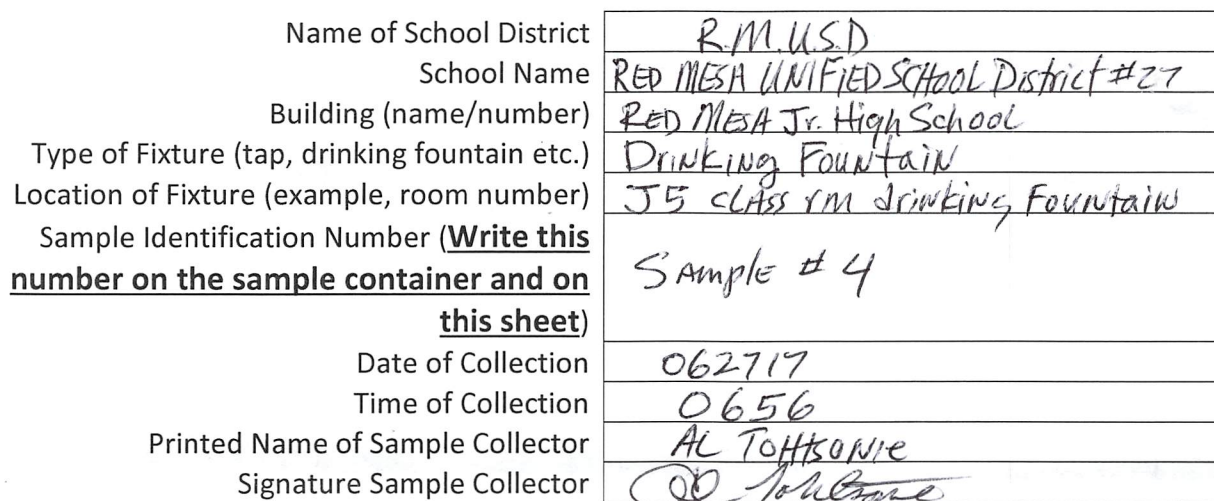 Name of School District R.M.U.S.D
School Name RED MESA UNIFIED SCHOOL District #27
Building (name/number) RED MESA Jr. High School
Type of Fixture (tap, drinking fountain etc.) Drinking Fountain
Location of Fixture (example, room number) J5 class rm drinking Fountain
Sample Identification Number (Write this
number on the sample container and on Sample # 4
this sheet)
Date of Collection 062717
Time of Collection 0656
Printed Name of Sample Collector AL TOHTSONIE
Signature Sample Collector